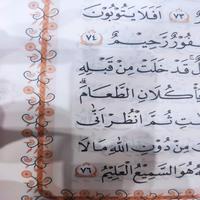 ٧٣ اَفَلَا يَتُوبُونَ
فُورٌ رَحِيمٌ ٧٤
قَدْ خَلَتْ مِنْ قَبْلِهِ
أْكُلَانِ الطَّعَامَ
تِ ثُمَّ انْظُرْ اَنّٰى
مِنْ دُونِ اللّٰهِ مَا لَا
هُوَ السَّمِيعُ الْعَلِيمُ ٧٦